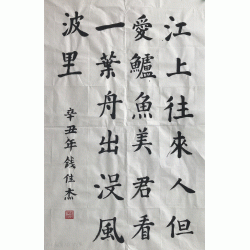 江上往來人但
愛鱸魚美君看
一葉舟出沒風
波里
辛丑年錢佳杰